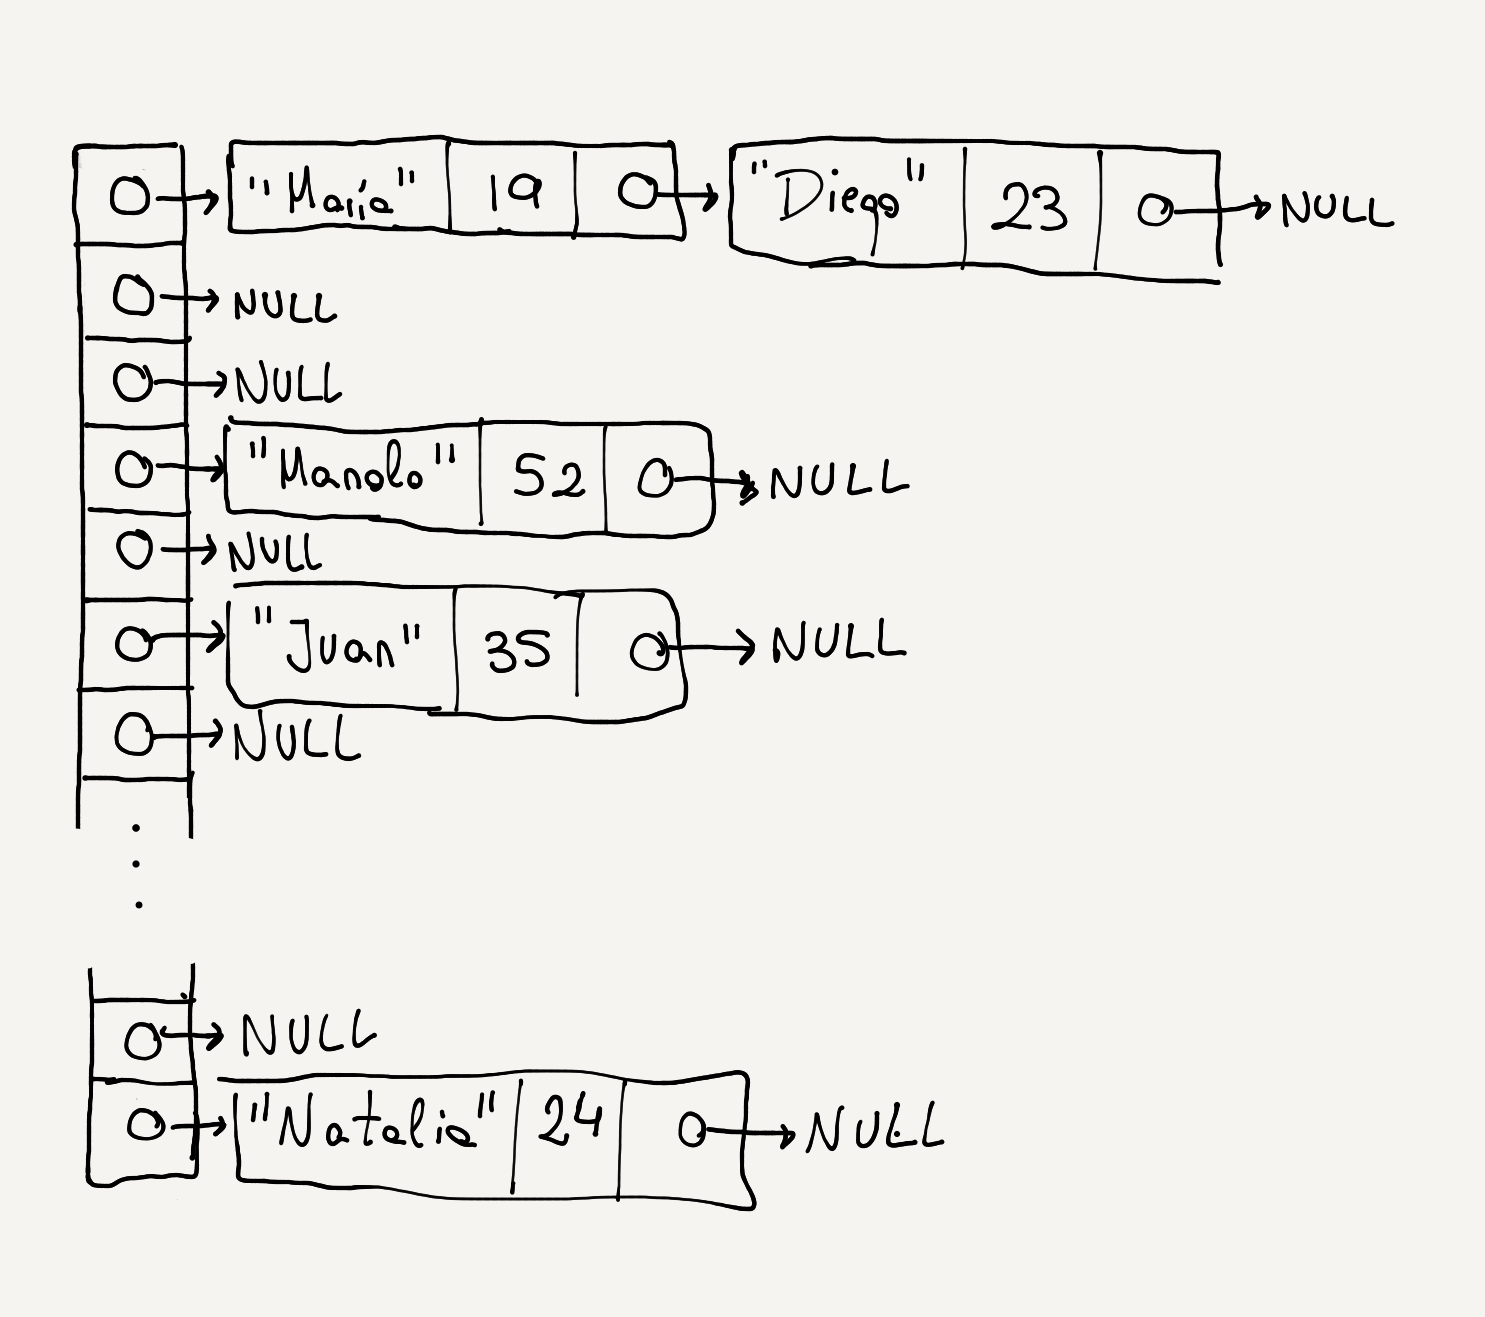 "María" 19 "Diego" 23 NULL
NULL
NULL
"Manolo" 52 NULL
NULL
"Juan" 35 NULL
NULL
NULL
"Natalia" 24 NULL